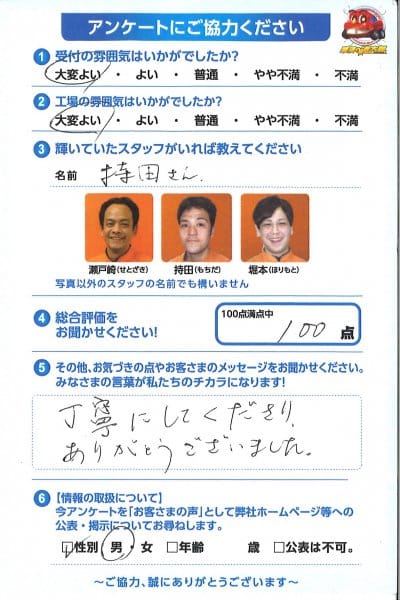 アンケートにご協力ください
1 受付の雰囲気はいかがでしたか?
大変よい ・ よい ・ 普通 ・ やや不満 ・ 不満
2 工場の雰囲気はいかがでしたか?
大変よい ・ よい ・ 普通 ・ やや不満 ・ 不満
3 輝いていたスタッフがいれば教えてください
名前 持田さん
瀬戸崎(せとざき) 持田(もちだ) 堀本(ほりもと)
写真以外のスタッフの名前でも構いません
4 総合評価を
お聞かせください!
100点満点中
100 点
5 その他、お気づきの点やお客さまのメッセージをお聞かせください。
みなさまの言葉が私たちのチカラになります!
丁寧にしてくださり
ありがとうございました。
6 【情報の取扱について】
今アンケートを「お客さまの声」として弊社ホームページ等への
公表・掲示についてお尋ねします。
☑性別 男・女 □年齢 歳 □公表は不可。
～ご協力、誠にありがとうございます～